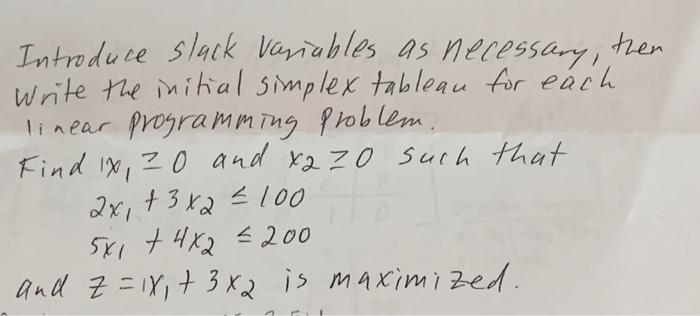 Introduce slack variables as necessary, then
Write the initial simplex tableau for each
linear programming problem.
Find 1x₁ ≥ 0 and x2 ≥ 0 such that
2x₁ + 3x2 ≤ 100
5x₁ + 4x2 ≤ 200
and z = 1x₁ + 3x2 is maximized.